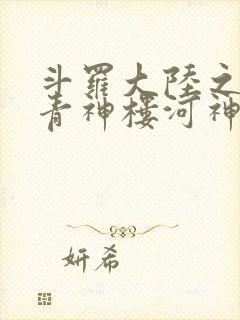 斗羅大陸之
青神樓河神
妍希